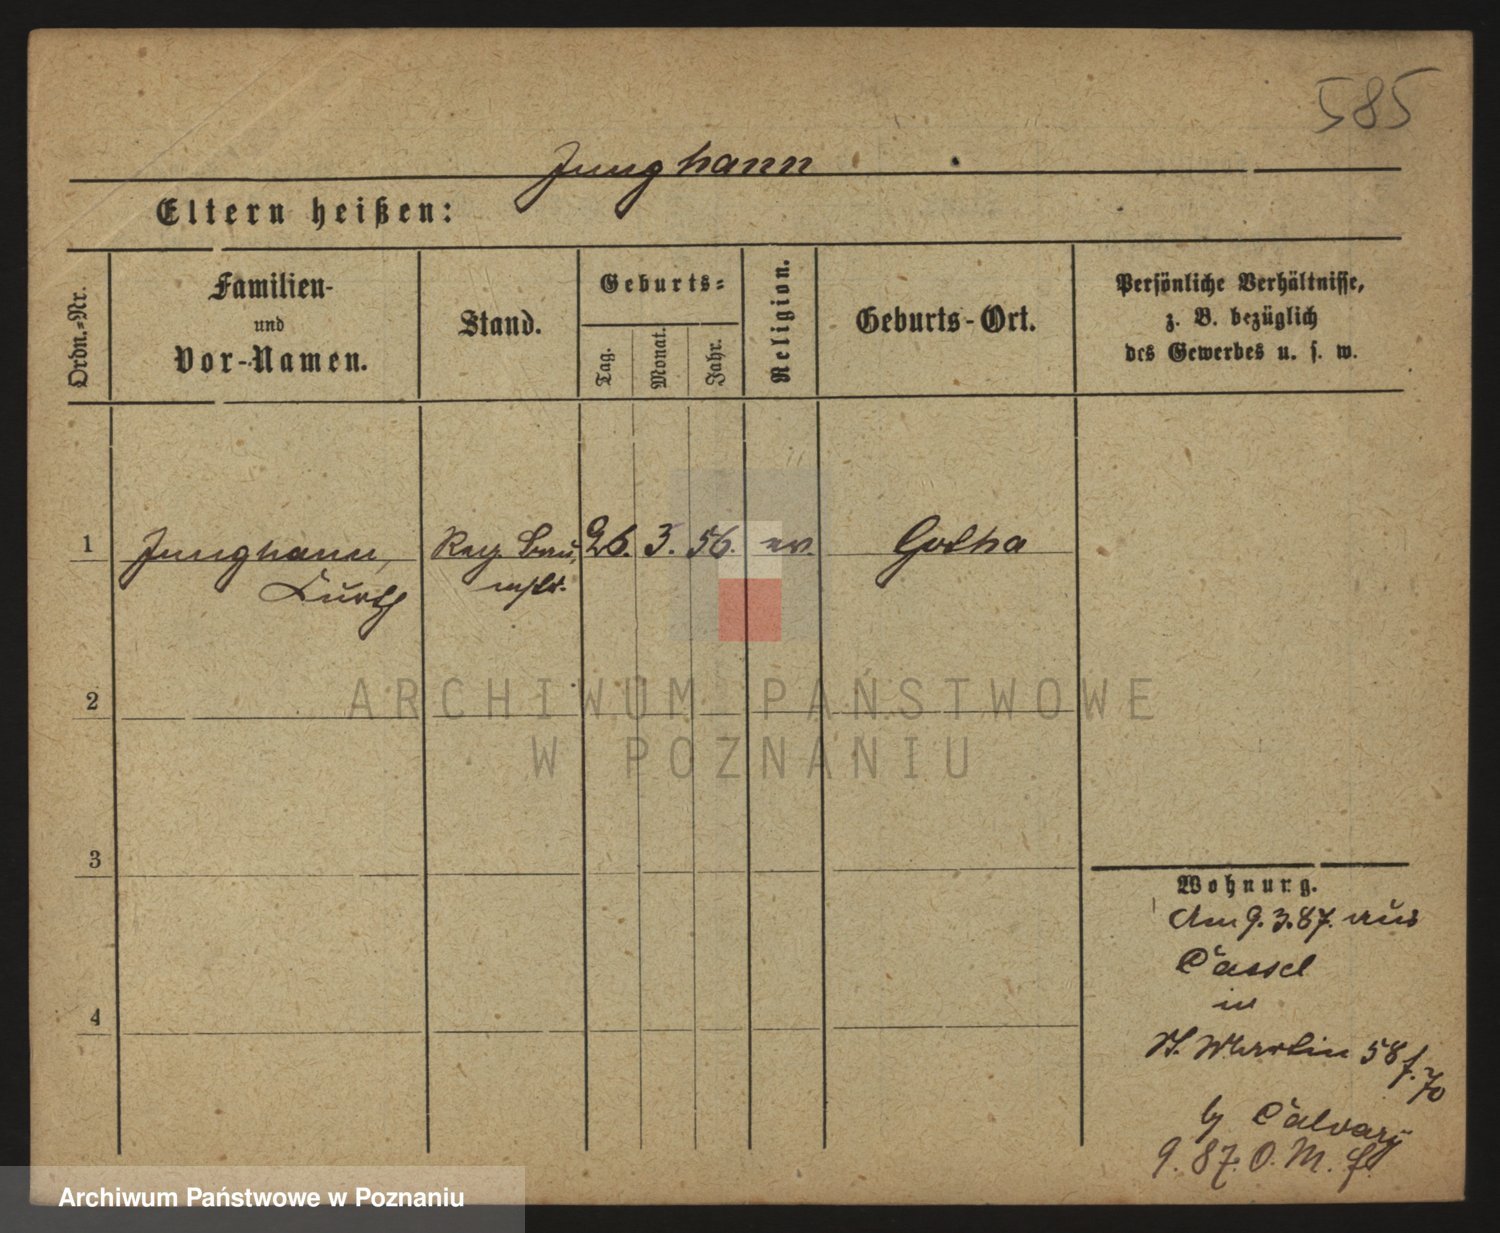 585
Junghann
Eltern heißen:
Ordn.-Nr.
Familien-
und
Vor-Namen.
Stand.
Geburts-
Tag.
Monat.
Jahr.
Religion.
Geburts-Ort.
Persönliche Verhältnisse,
z. B. bezüglich
des Gewerbes u. s. w.
1 Junghann, Reg Bau, 26. 3. 56. ev Gotha
Curth mstr.
2
ARCHIWUM PAŃSTWOWE
W POZNANIU
3
Wohnung.
Am 9.3.87. aus
Cassel
in
St. Martin 58
by Calvary
4
9. 87. O. M.
Archiwum Państwowe w Poznaniu